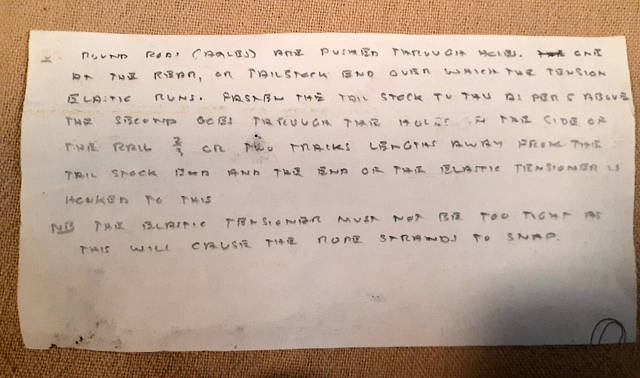 X ROUND RODS (AXLES) ARE PUSHED THROUGH HOLES. THE ONE
AT THE REAR, OR TAILSTOCK END OVER WHICH THE TENSION
ELASTIC RUNS. FASTEN THE TAIL STOCK TO THIS AS PER 5 ABOVE
THE SECOND GOES THROUGH THE HOLES IN THE SIDE OF
THE RAIL 2/3 OR TWO TRACKS LENGTHS AWAY FROM THE
TAIL STOCK END AND THE END OF THE ELASTIC TENSIONER IS
HOOKED TO THIS
NB THE ELASTIC TENSIONER MUST NOT BE TOO TIGHT AS
THIS WILL CAUSE THE ROPE STRANDS TO SNAP.